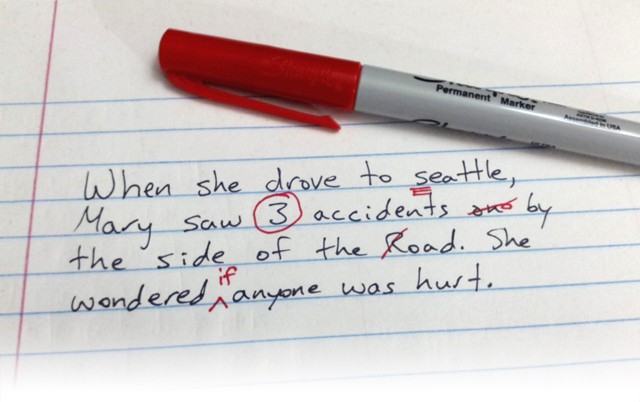 Permanent Marker
When she drove to seattle,
Mary saw 3 accidents ono by
the side of the Road. She
if
wondered ^ anyone was hurt.